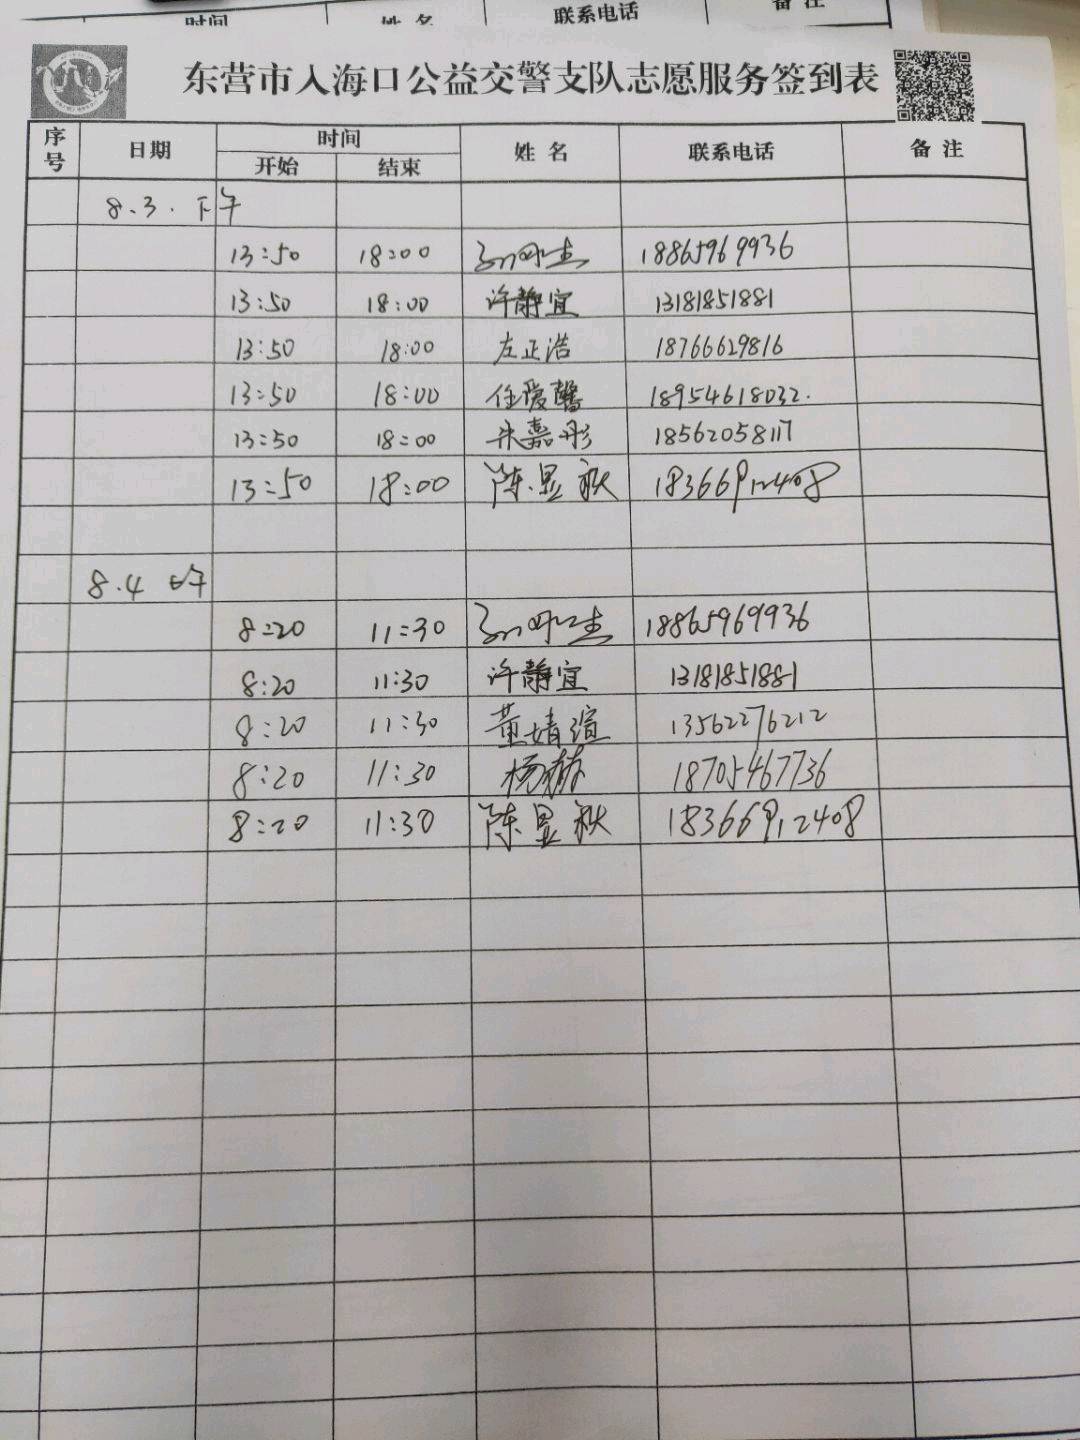 时间 姓 名 联系电话 备 注
东营市入海口公益交警支队志愿服务签到表
序号 日期 时间 姓 名 联系电话 备 注
开始 结束
8.3.下午
13:50 18:00 18865969936
13:50 18:00 许静宜 13181851881
13:50 18:00 左正浩 18766629816
13:50 18:00 任爱馨 18954618032.
13:50 18:00 朱嘉彤 18562058117
13:50 18:00 陈昱秋 18366912408
8.4 上午
8:20 11:30 18865969936
8:20 11:30 许静宜 13181851881
8:20 11:30 黄婧瑄 13562276212
8:20 11:30 杨赫 18705467736
8:20 11:30 陈昱秋 18366912408